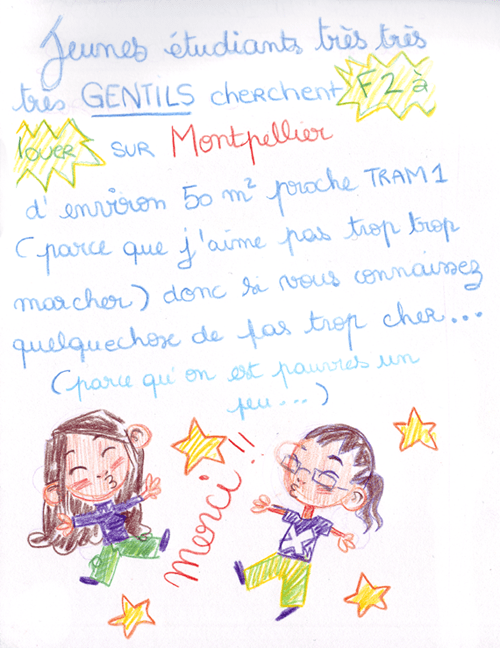 Jeunes étudiants très très
très GENTILS cherchent F2 à
louer sur Montpellier
d'environ 50 m² proche TRAM 1
(parce que j'aime pas trop trop
marcher) donc si vous connaissez
quelquechose de pas trop cher...
(parce qu'on est pauvres un
peu...)
Merci!!